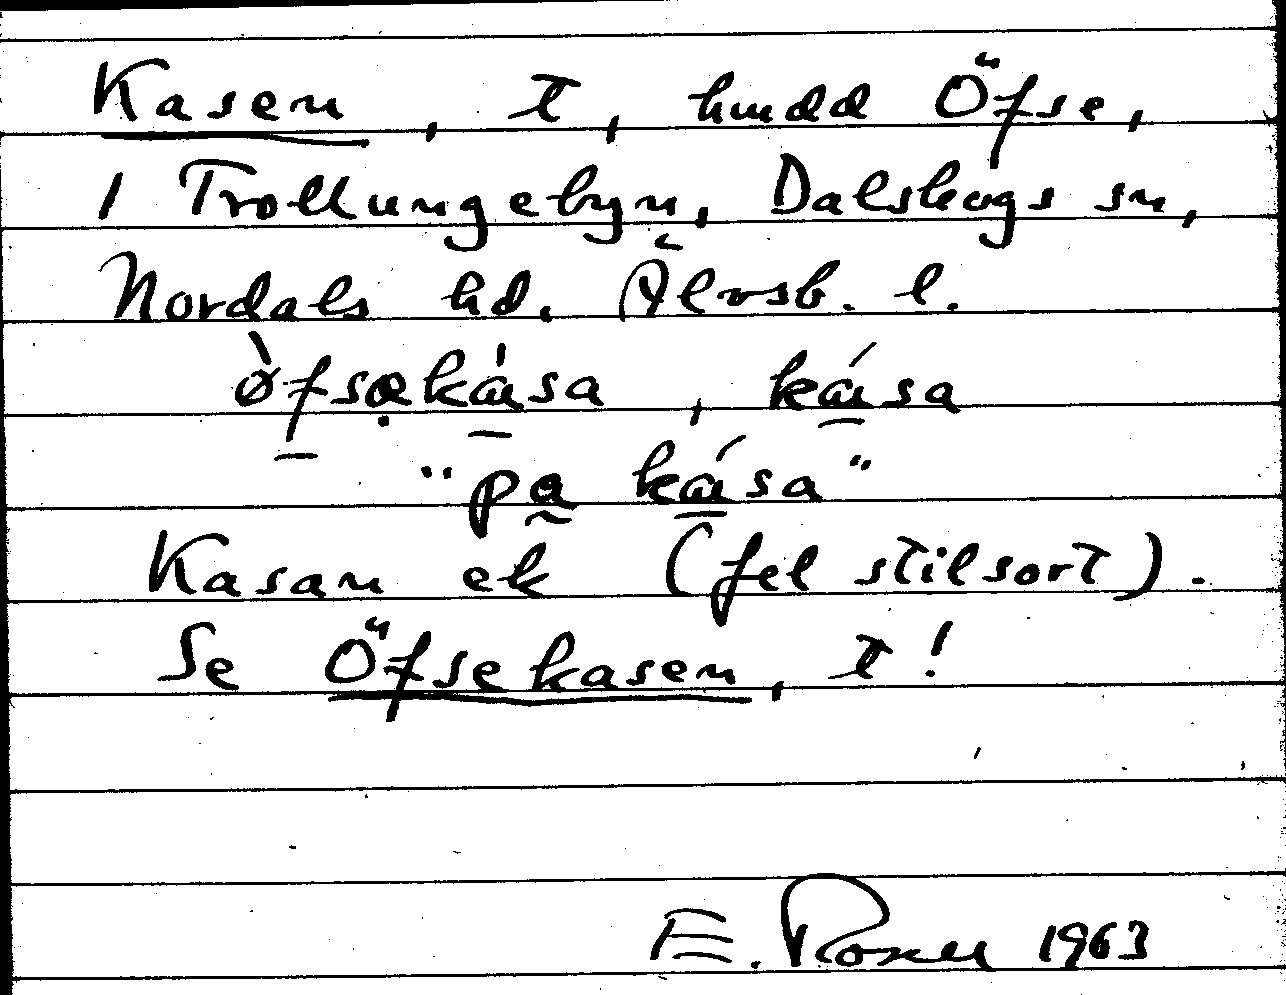 Kasen, t, hmdd Öfse,
1 Trollungebyn, Dalskogs sn,
Nordals hd. Älvsb. l.
ø̀fsękása, kása
"pa kása"
Kasan ek (fel stilsort).
Se Öfsekasen, t!
E. 1963